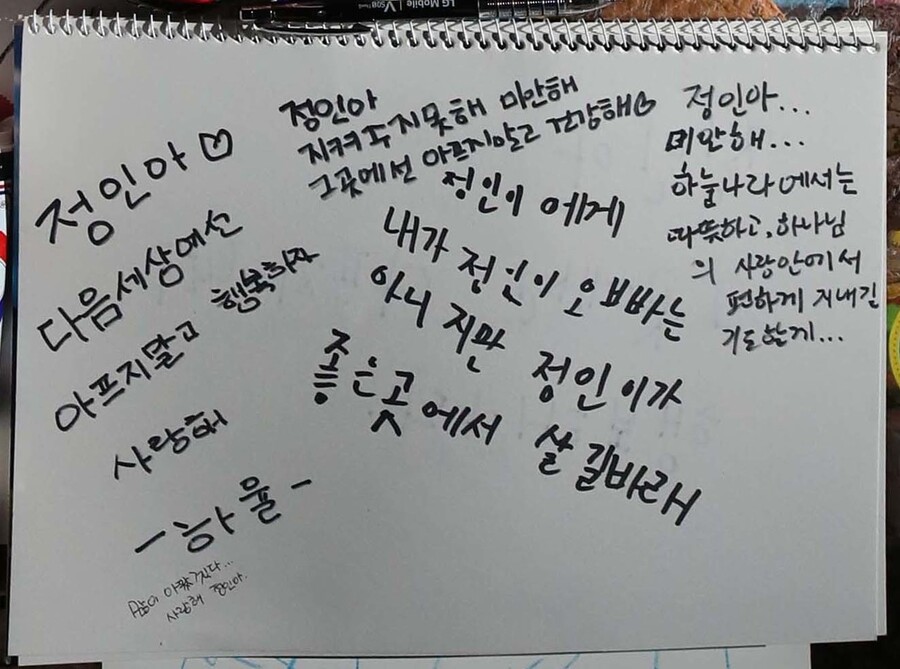 LG Mobile V50S
정인아♡
다음세상에선
아프지말고 행복하자
사랑해
-하율-
많이 아팠겠다...
사랑해 정인아.
정인아
지켜주지못해 미안해
그곳에선 아프지말고 건강해♡
정인이 에게
내가 정인이 오빠는
아니 지만 정인이가
좋은곳에서 살길바래
정인아...
미안해...
하늘나라에서는
따뜻하고, 하나님
의 사랑안에서
편하게 지내길
기도할게...